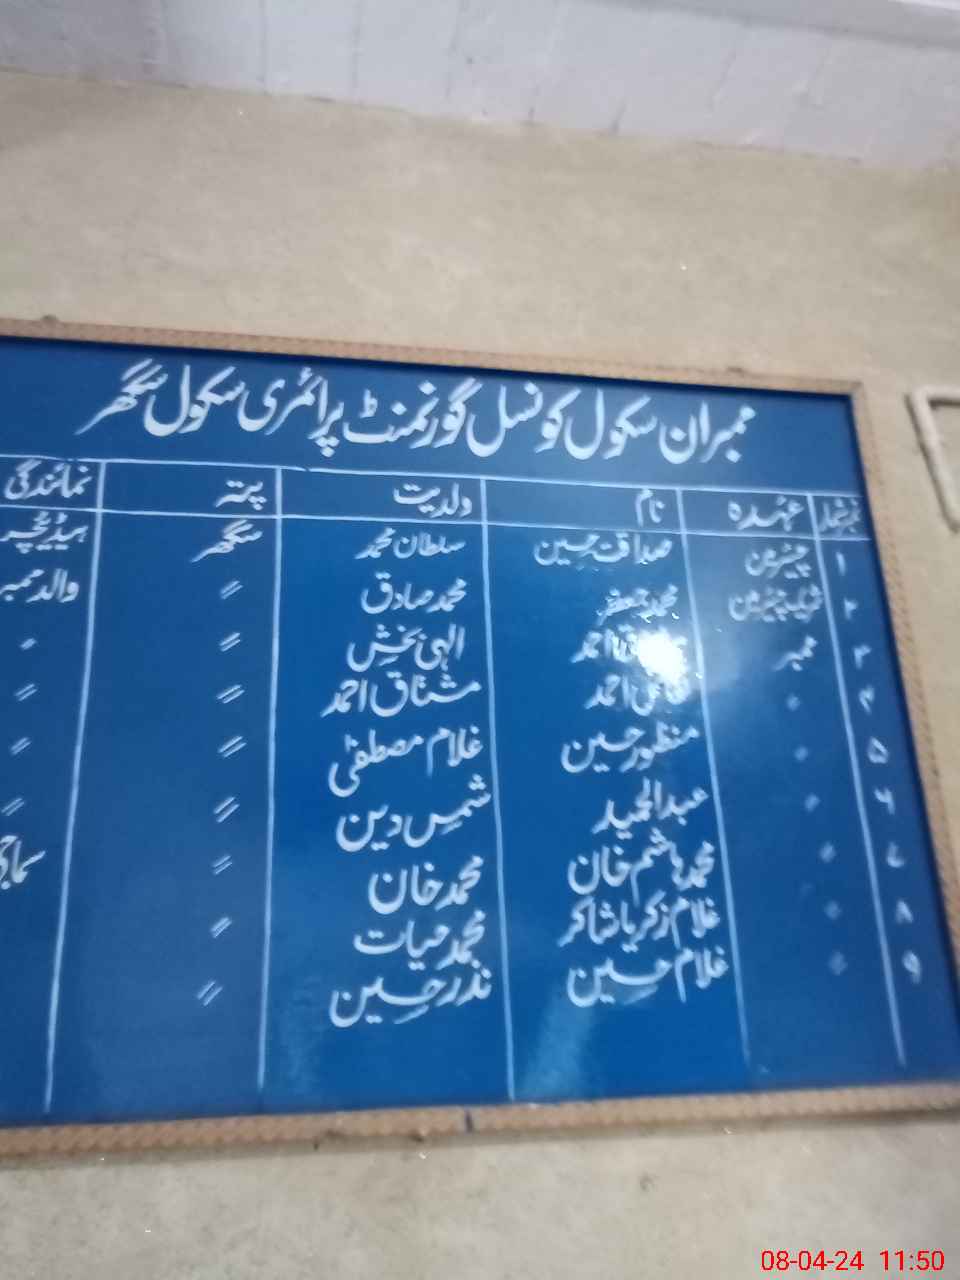 ممبران سکول کونسل گورنمنٹ پرائمری سکول سگھر
نمبر شمار عہدہ نام ولدیت پتہ نمائندگی
۱ چیئرمین صداقت حسین سلطان محمد سگھر ہیڈ ٹیچر
۲ چیئرمین محمد جعفر محمد صادق 〃 والد ممبر
۳ ممبر احمد الٰہی بخش 〃 〃
۴ 〃 احمد مشتاق احمد 〃 〃
۵ 〃 منظور حسین غلام مصطفٰی 〃 〃
۶ 〃 عبدالحمید شمس دین 〃 〃
۷ 〃 محمد ہاشم خان محمد خان 〃
۸ 〃 غلام زکریا شاکر محمد حیات 〃
۹ 〃 غلام حسین نذر حسین 〃
08-04-24 11:50